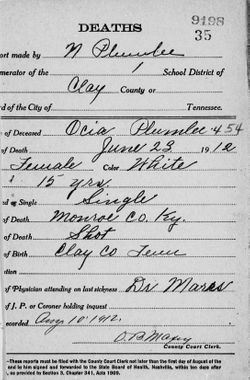 DEATHS
9198
35
ort made by N Plumlee
umerator of the 1 School District of
Clay County or
rd of the City of Tennessee.
of Deceased Ocia Plumlee 454
of Death June 23 1912
Female Color White
15 yrs.
Single Single
of Death Monroe Co. Ky.
of Death Shot
of Birth Clay Co Tenn
tion
of Physician attending on last sickness Dr Mares
of J. P. or Coroner holding inquest
ecorded Aug 10 1912.
County Court Clerk.
—These reports must be filed with the County Court Clerk not later than the first day of August of the
and to him signed and forwarded to the State Board of Health, Nashville, within ten days after
as provided in Section 3, Chapter 341, Acts 1909.